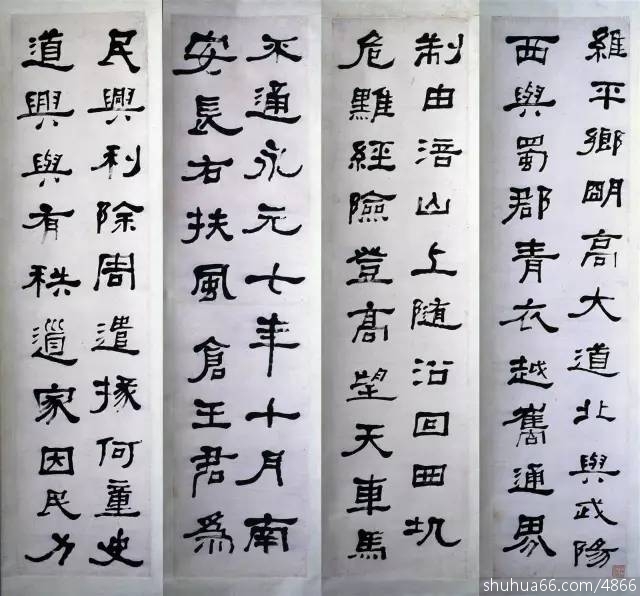 維平鄉明高大道北與武陽
西與蜀郡青衣越嶲通界
制由涪山上隨沿回田圠
危難經險登高望天車馬
不通永元七年十月南
安長右扶風倉王君為
民興利除周遣掾何童史
道興與有秩家因民力
shuhua66.com/4866